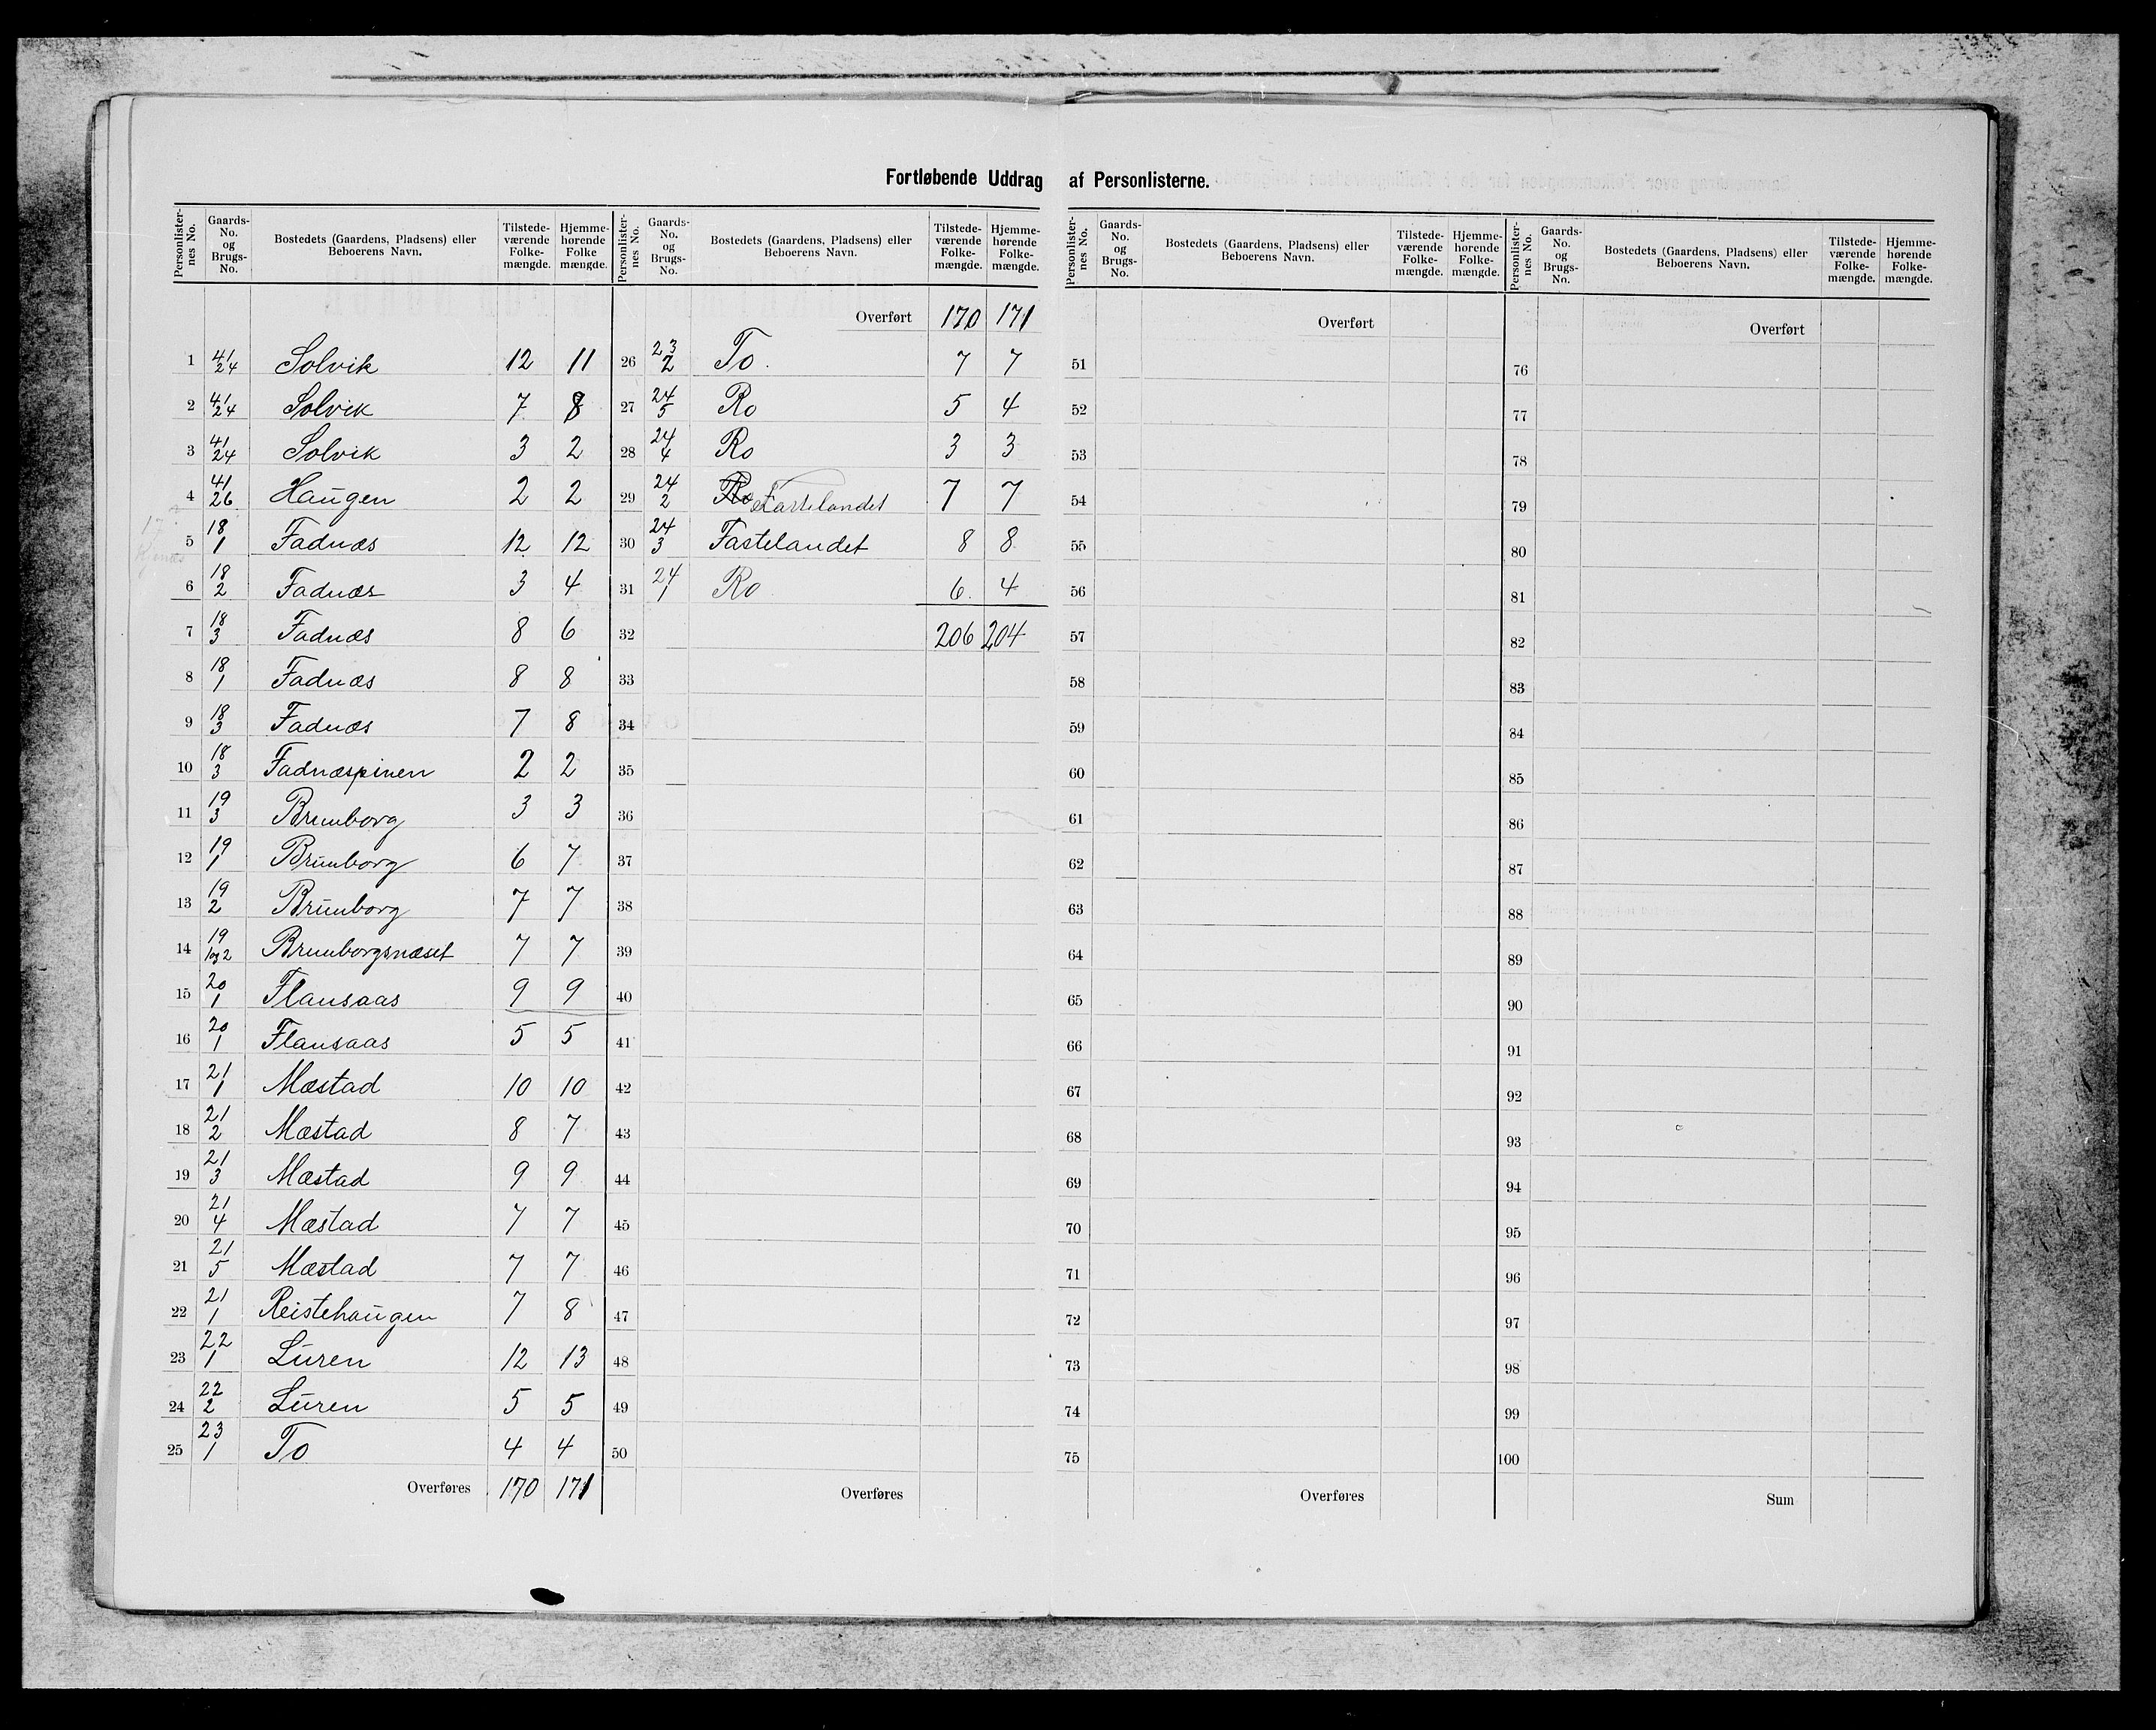 Fortløbende Uddrag af Personlisterne.
Personlister-nes No. | Gaards-No. og Brugs-No. | Bostedets (Gaardens, Pladsens) eller Beboerens Navn. | Tilstede-værende Folke-mængde. | Hjemme-hørende Folke mængde.
1 41/24 Solvik 12 11
2 41/24 Solvik 7 8
3 41/24 Solvik 3 2
4 41/26 Haugen 2 2
5 18/1 Fadnæs 12 12
6 18/2 Fadnæs 3 4
7 18/3 Fadnæs 8 6
8 18/1 Fadnæs 8 8
9 18/3 Fadnæs 7 8
10 18/3 Fadnæspinen 2 2
11 19/3 Brunborg 3 3
12 19/1 Brunborg 6 7
13 19/2 Brunborg 7 7
14 19/1og2 Brunborgsnæset 7 7
15 20/1 Flansaas 9 9
16 20/1 Flansaas 5 5
17 21/1 Mæstad 10 10
18 21/2 Mæstad 8 7
19 21/3 Mæstad 9 9
20 21/4 Mæstad 7 7
21 21/5 Mæstad 7 7
22 21/1 Reistehaugen 7 8
23 22/1 Luren 12 13
24 22/2 Luren 5 5
25 23/1 To 4 4
Overføres 170 171
Personlister-nes No. | Gaards-No. og Brugs-No. | Bostedets (Gaardens, Pladsens) eller Beboerens Navn. | Tilstede-værende Folke-mængde. | Hjemme-hørende Folke-mængde.
Overført 170 171
26 23/2 To. 7 7
27 24/5 Ro 5 4
28 24/4 Ro 3 3
29 24/2 Ro Fastelandet 7 7
30 24/3 Fastelandet 8 8
31 24/1 Ro 6 4
32 206 204
33
34
35
36
37
38
39
40
41
42
43
44
45
46
47
48
49
50
Overføres
Personlister-nes No. | Gaards-No. og Brugs-No. | Bostedets (Gaardens, Pladsens) eller Beboerens Navn. | Tilstede-værende Folke-mængde. | Hjemme-hørende Folke-mængde.
Overført
51
52
53
54
55
56
57
58
59
60
61
62
63
64
65
66
67
68
69
70
71
72
73
74
75
Overføres
Personlister-nes No. | Gaards-No. og Brugs-No. | Bostedets (Gaardens, Pladsens) eller Beboerens Navn. | Tilstede-værende Folke-mængde. | Hjemme-hørende Folke-mængde.
Overført
76
77
78
79
80
81
82
83
84
85
86
87
88
89
90
91
92
93
94
95
96
97
98
99
100
Sum